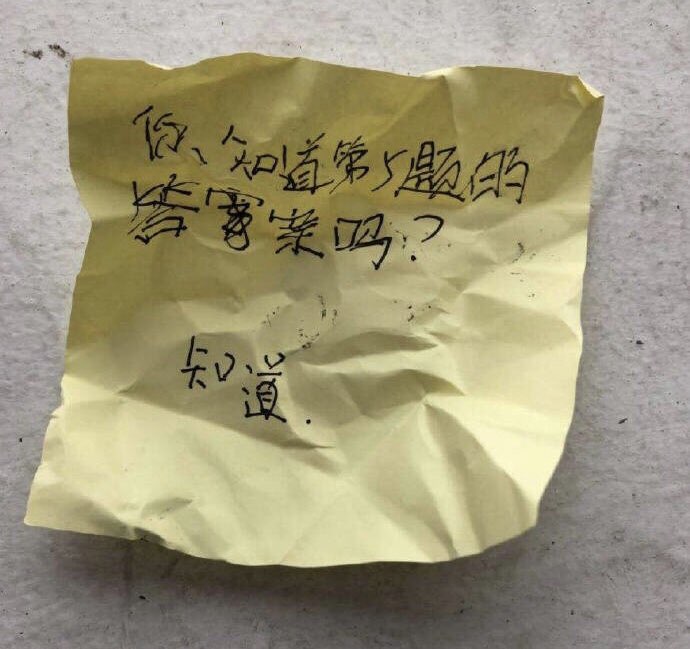 你知道第5题的
答案吗？
知
道.